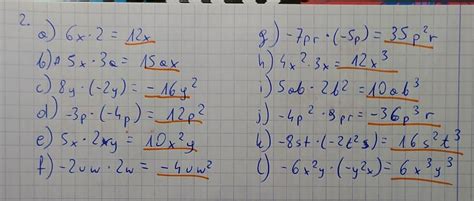 2.
a) 6x · 2 = 12x
b) 5x · 3a = 15ax
c) 8y · (-2y) = -16y²
d) -3p · (-4p) = 12p²
e) 5x · 2xy = 10x²y
f) -2vw · 2w = -4vw²
g) -7pr · (-5p) = 35p²r
h) 4x² · 3x = 12x³
i) 5ab · 2b² = 10ab³
j) -4p² · 9pr = -36p³r
k) -8st · (-2t²s) = 16s²t³
l) -6x²y · (-y²x) = 6x³y³